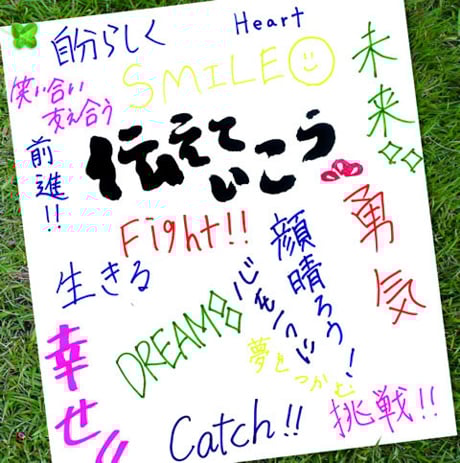 自分らしく
Heart
SMILE
未来
笑い合い
支え合う
前進!!
伝えて
いこう
勇気
Fight!!
顔晴ろう!
生きる
心を1つに
DREAM
幸せ!!
夢をつかむ
挑戦!!
Catch!!